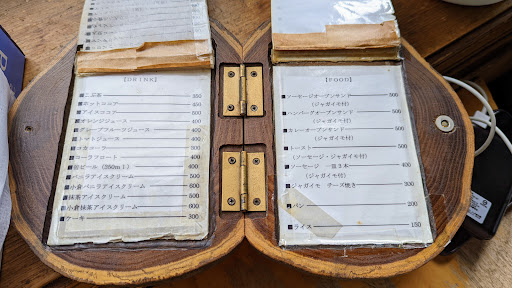 【DRINK】
■こぶ茶 350
■ホットココア 450
■アイスココア
■オレンジジュース 400
■グレープフルーツジュース 400
■トマトジュース 400
■コカコーラ 400
■コーラフロート
■缶ビール（250ml） 400
■バニラアイスクリーム 500
■小倉バニラアイスクリーム 600
■抹茶アイスクリーム
■小倉抹茶アイスクリーム
■ケーキ 300
【FOOD】
■ソーセージオープンサンド 500
（ジャガイモ付）
■ハンバーグオープンサンド 500
（ジャガイモ付）
■カレーオープンサンド 500
（ジャガイモ付）
■トースト 500
（ソーセージ・ジャガイモ付）
■ソーセージ 一皿3本
（ジャガイモ付）
■ジャガイモ チーズ焼き 300
■パン 200
■ライス 150